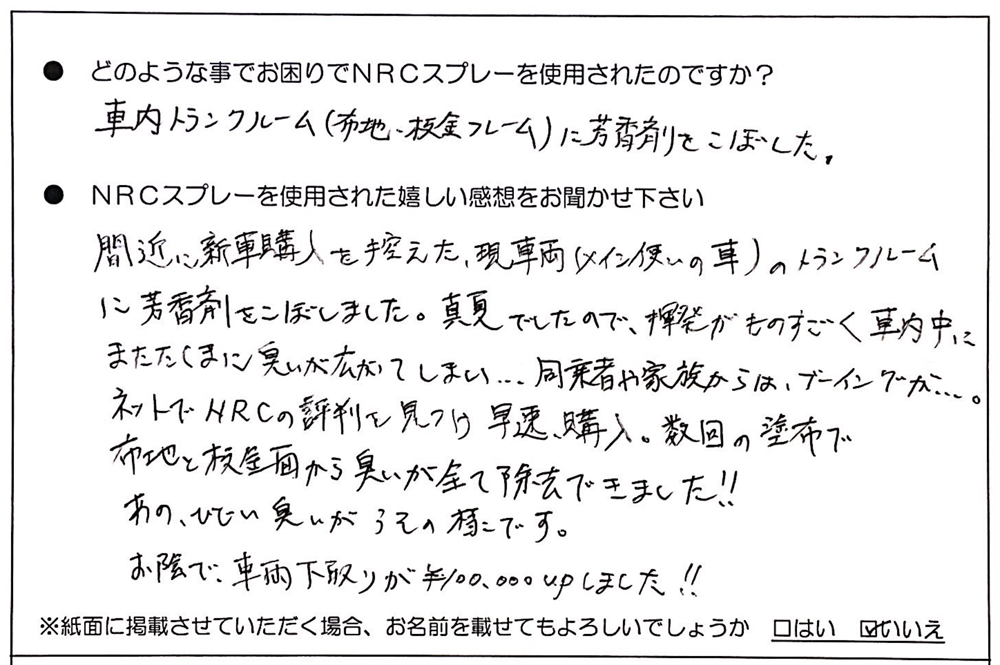 ● どのような事でお困りでNRCスプレーを使用されたのですか？
車内トランクルーム(布地、板金フレーム)に芳香剤をこぼした。
● NRCスプレーを使用された嬉しい感想をお聞かせ下さい
間近に新車購入を控えた、現車両(メイン使いの車)のトランクルーム
に芳香剤をこぼしました。真夏でしたので、揮発がものすごく車内中に
またたくまに臭いが広がてしまい…同乗者や家族からは、ブーイングが…。
ネットでNRCの評判を見つけ早速、購入。数回の塗布で
布地と板金面から臭いが全て除去できました!!
あの、ひどい臭いがうその様です。
お陰で、車両下取りが¥100.000upしました!!
※紙面に掲載させていただく場合、お名前を載せてもよろしいでしょうか □はい ☑いいえ